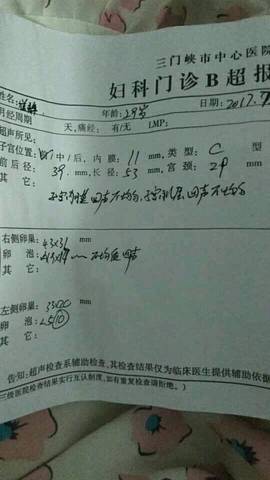 三门峡市中心医院
妇科门诊B超报
姓名: 年龄: 29岁 日期: 2017.7
月经周期 天, 痛经: 有/无 LMP:
超声所见:
子宫位置: 中/后, 内膜: 11 mm, 类型: C 型
前后径: 39 mm, 长径: 53 mm, 宫颈: 29 mm
其它: 回声不均匀, 回声不均匀
右侧卵巢: 43×31 mm
卵泡: mm 不均质回声
其它:
左侧卵巢: mm
卵泡: <5 (10)
其它:
告知: 超声检查系辅助检查, 其检查结果仅为临床医生提供辅助依据
三级医院检查结果实行互认制度, 如有重复检查请拒绝。)